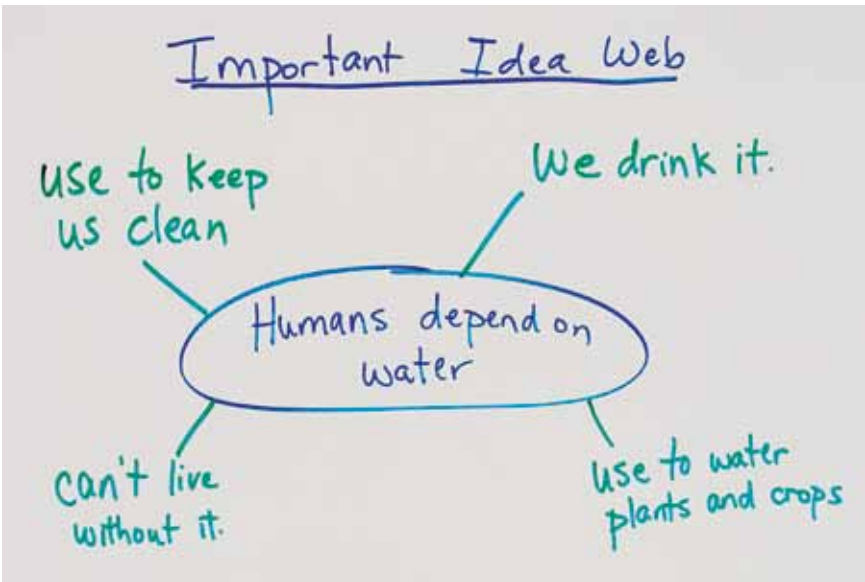 Important Idea Web
use to keep
us clean
We drink it.
Humans depend on
water
can't live
without it.
use to water
plants and crops